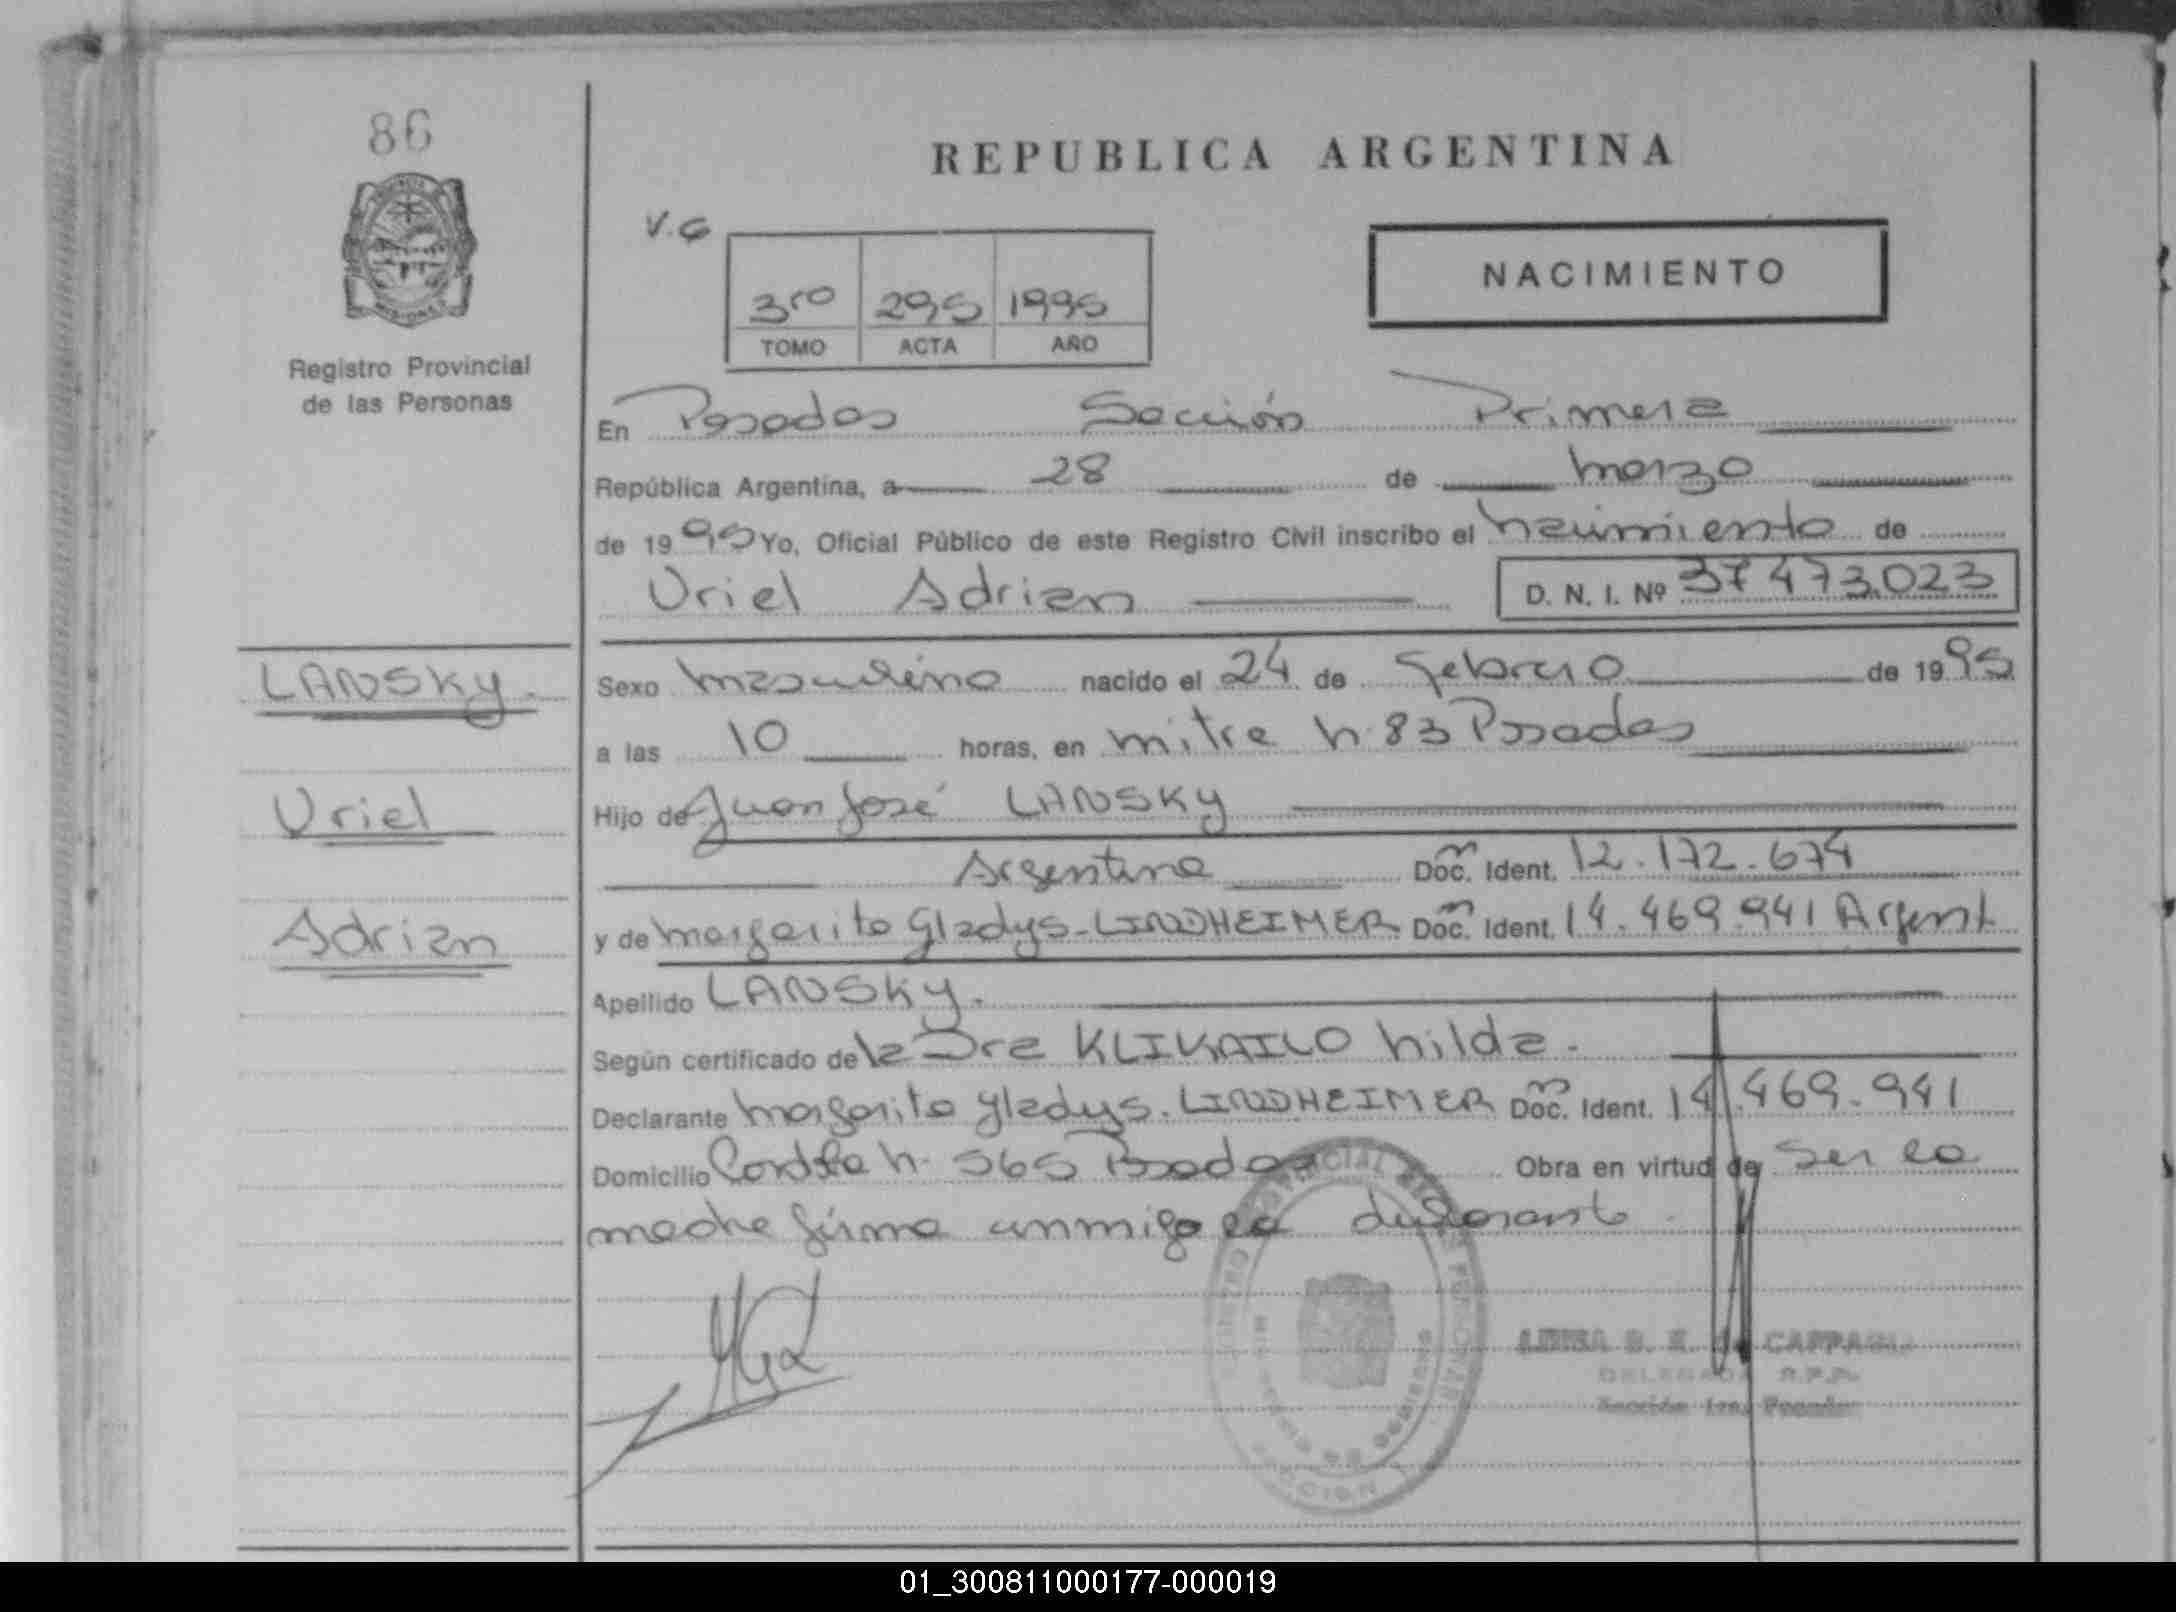 86
REPUBLICA ARGENTINA
V.G
NACIMIENTO
3ro 295 1995
TOMO ACTA AÑO
Registro Provincial
de las Personas
En Posadas Sección Primera
República Argentina, a 28 de marzo
de 1995 Yo, Oficial Público de este Registro Civil inscribo el nacimiento de
Uriel Adrian D. N. I. Nº 37473.023
LANSKY.
Sexo masculino nacido el 24 de febrero de 1995
a las 10 horas, en mitre n. 83 Posadas
Uriel
Hijo de Juan José LANSKY
Argentina Doc. Ident. 12.172.674
Adrian
y de margarita Gladys-LINDHEIMER Doc. Ident. 14.469.941 Argent
Apellido LANSKY.
Según certificado de la Dra KLIKAILO hilda.
Declarante margarita gladys. LINDHEIMER Doc. Ident. 14.469.941
Domicilio n. 565 Posadas Obra en virtud de Ser la
madre firma conmigo la
DELEGADA R.P.P.
Sección 1ra. Posadas
01_300811000177-000019